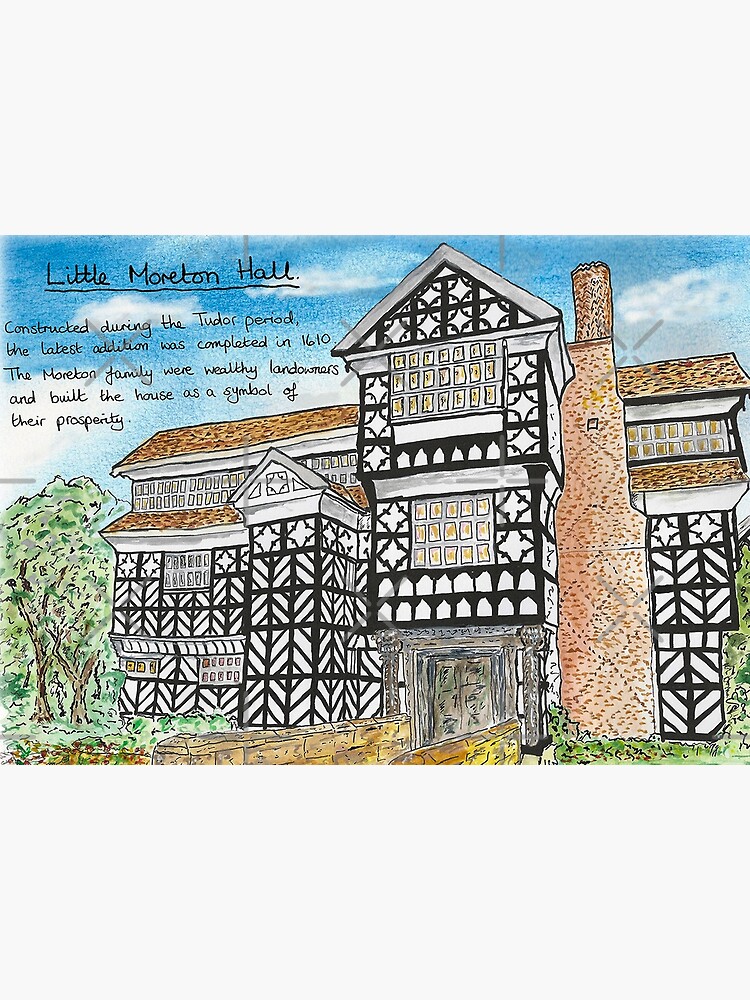 Little Moreton Hall.
Constructed during the Tudor period,
the latest addition was completed in 1610.
The Moreton family were wealthy landowners
and built the house as a symbol of
their prosperity.